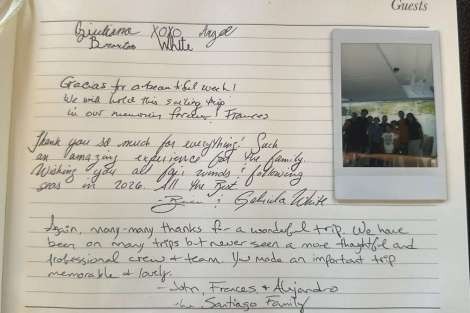 Guests
Giuliana XOXO Angel
Braxton White
Gracias for a beautiful week!
We will hold this sailing trip
in our memories forever! Frances
Thank you so much for everything! Such
an amazing experience for the family.
Wishing you all fair winds & following
seas in 2026. All the Best,
& White
Again, many-many thanks for a wonderful trip. We have
been on many trips but never seen a more thoughtful and
professional crew & team. You made an important trip
memorable & lovely.
- John, Frances & Alejandro
Santiago Family